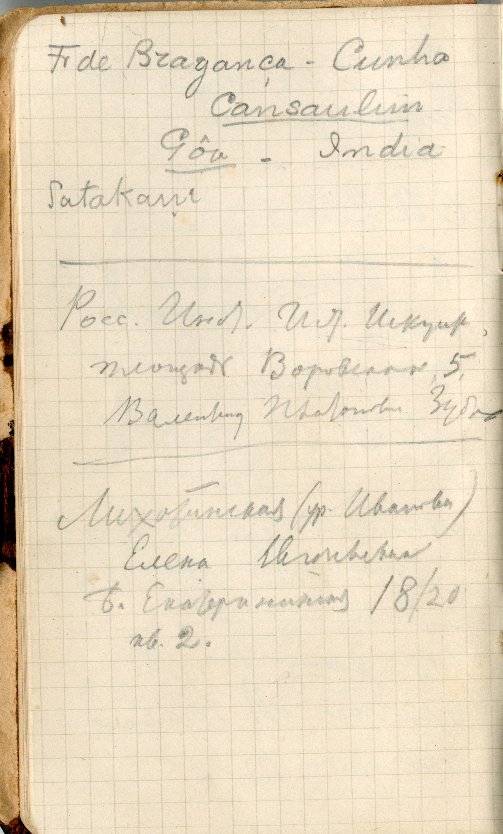 Fr de Bragança - Cunha
Cansaulim
Gôa - India
Satakarṇi
Росс. Инст. Ист. Искусст.
площадь Воровского, 5,
Валентин Платонович Зубов
(ур. Иванова)
Елена
б. Екатерининская 18/20
кв. 2.